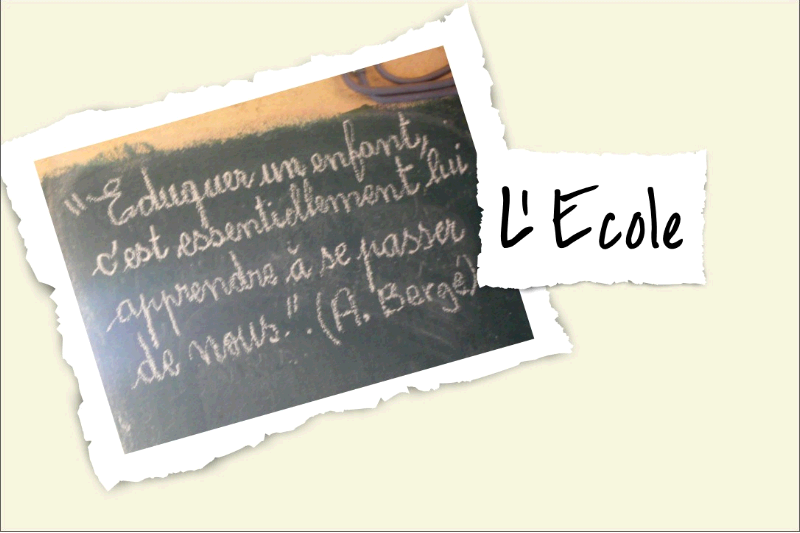 "Eduquer un enfant,
c'est essentiellement lui
apprendre à se passer
de nous.". (A. Bergé)
L' Ecole